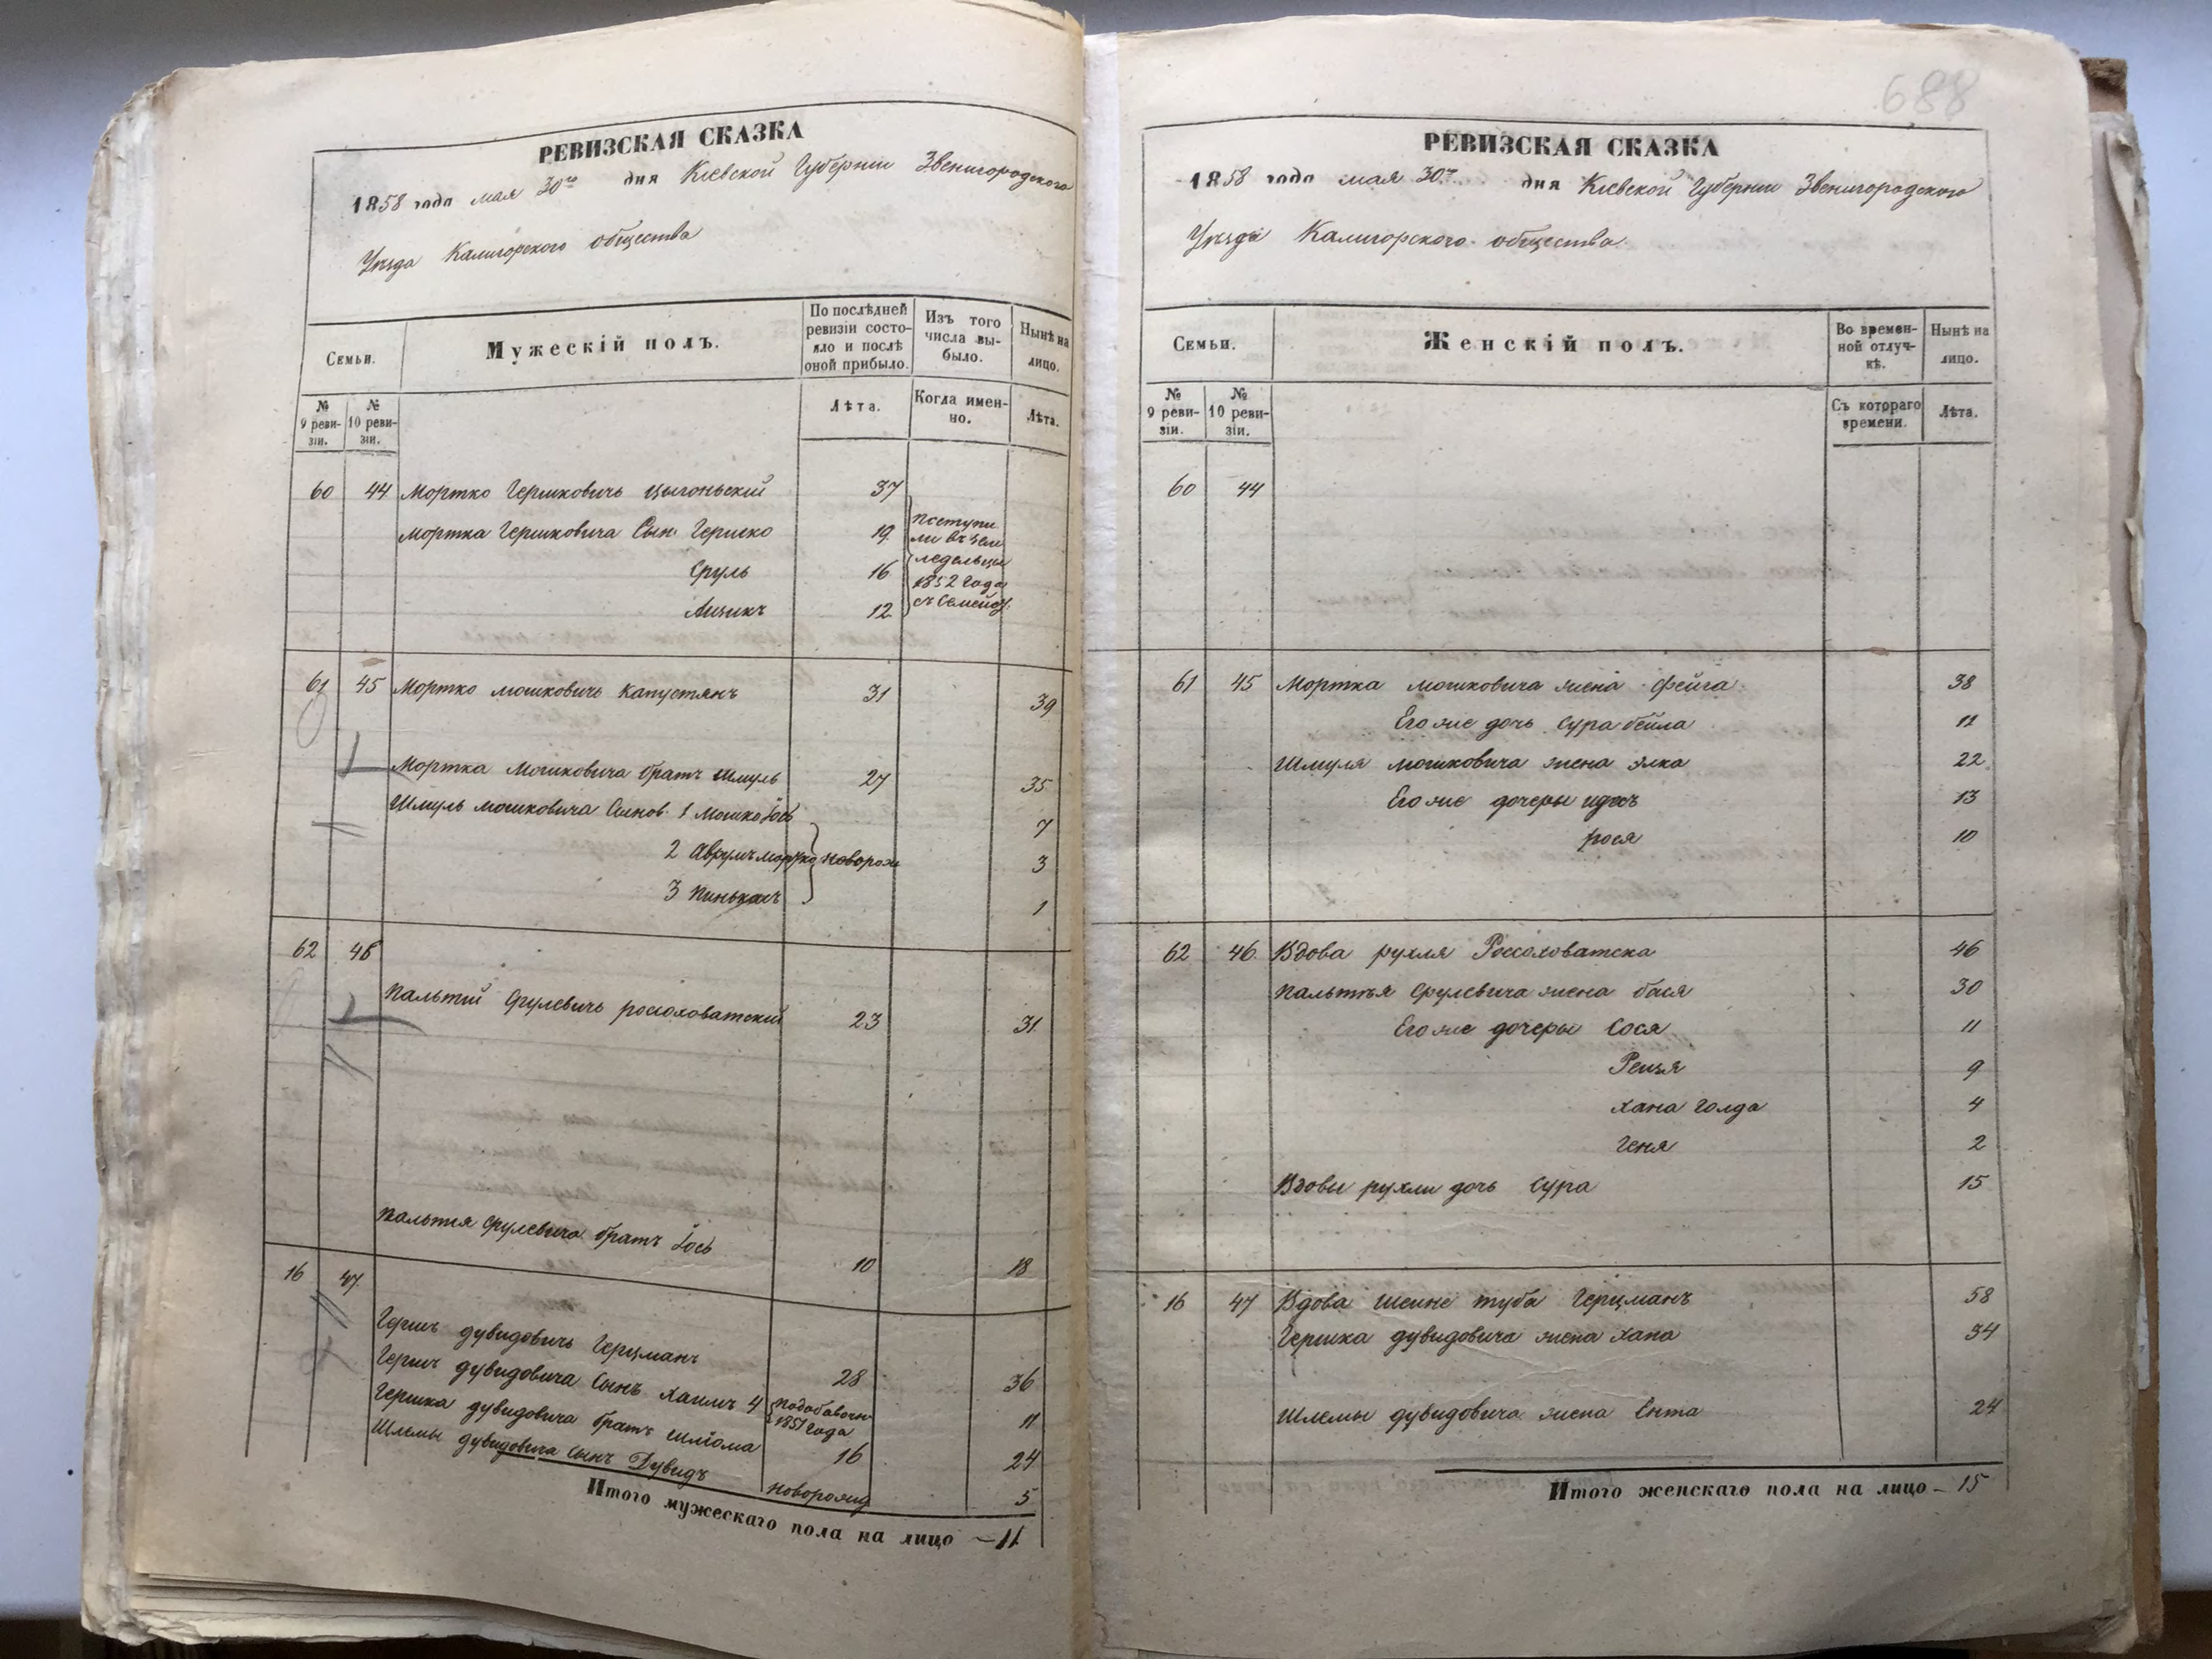 РЕВИЗСКАЯ СКАЗКА
1858 года мая 30го дня Кіевской Губерніи Звенигородского
Уѣзда Калигорского общества
Семьи.
Мужескій полъ.
По послѣдней ревизіи состо-
яло и послѣ
оной прибыло.
Изъ того
числа вы-
было.
Нынѣ на
лицо.
№
9 реви-
зіи.
№
10 реви-
зіи.
Лѣта.
Когда имен-
но.
Лѣта.
60 44 Мортко Гершковичь Цыгоньский 37
Мортка Гершковича Сын Гершко 19
Сруль 16
Аизикъ 12
поступи
ли въ зем
ледельцы
1852 года
съ Семейст.
61 45 Мортко Мошковичь Капустянъ 31 39
Мортка Мошковича братъ Шмуль 27 35
Шмуль Мошковича Сынов. 1 Мошко Iось 7
2 Аврумъ Мортко новорож 3
3 Пинькасъ 1
62 46
Пальтий Срулевичь россоховатский 23 31
Пальтия Срулевича братъ Iось 10 18
16 47
Гершъ дувидовичь Герцманъ 28 36
Гершъ дувидовича Сынъ Хаимъ 4 подобавочн 1851 года 11
Гершка дувидовича братъ Шліома 16 24
Шлемы дувидовича Сынъ Дувидъ новорожд 5
Итого мужескаго пола на лицо — 11
688
РЕВИЗСКАЯ СКАЗКА
1858 года мая 30го дня Кіевской Губерніи Звенигородского
Уѣзда Калигорского общества.
Семьи.
Женскій полъ.
Во времен-
ной отлуч-
кѣ.
Нынѣ на
лицо.
№
9 реви-
зіи.
№
10 реви-
зіи.
Съ котораго
времени.
Лѣта.
60 44
61 45 Мортка Мошковича жена Фейга 38
Его же дочь Сура бейла 11
Шмуля Мошковича жена Элка 22
Его же дочеры идесъ 13
рося 10
62 46 Вдова рухля Россоховатска 46
Пальтия Срулевича жена бася 30
Его же дочеры Сося 11
Рейзя 9
хана голда 4
Геня 2
Вдовы рухли дочь Сура 15
16 47 Вдова Шейне туба Герцманъ 58
Гершка дувидовича жена хана 34
Шлемы дувидовича жена Ента 24
Итого женскаго пола на лицо — 15